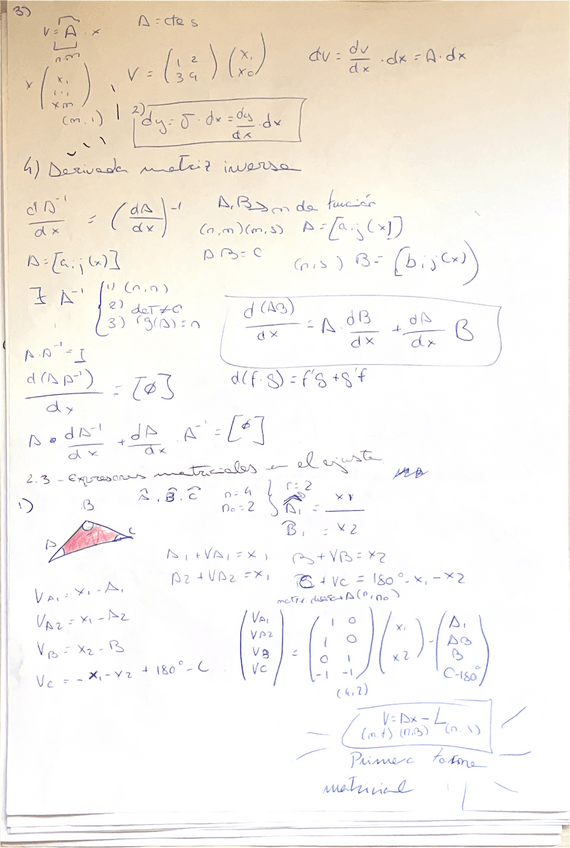 3)
V = A . x    A = ctes
n,m
x ( x1 ... xm ) (m,1)    V = ( 1 2 / 3 4 ) ( x1 / x0 )    dv = dv/dx . dx = A . dx
2) dy = J . dx = dy/dx . dx
4) Derivada matriz inversa
dA⁻¹/dx = (dA/dx)⁻¹    A, B m de función
(n,m)(m,s)  A = [aij(x)]
A = [aij(x)]    AB = C    (n,s)  B = [bij(x)]
∃ A⁻¹ { 1) (n,n)
2) det ≠ 0
3) rg(A) = n
d(AB)/dx = A . dB/dx + dA/dx B
A·A⁻¹ = I
d(AA⁻¹)/dx = [ø]    d(f·g) = f'g + g'f
A · dA⁻¹/dx + dA/dx . A⁻¹ = [ø]
2.3 - Expresiones matriciales en el ajuste
1)    B    Â, B̂, Ĉ    n = 4    r = 2
n0 = 2    Â1 = x1
A    C    B̂1 = x2
A1 + VA1 = x1    B + VB = x2
A2 + VA2 = x1    C + VC = 180° - x1 - x2
VA1 = x1 - A1    A(n,n0)
VA2 = x1 - A2
VB = x2 - B
VC = -x1 - x2 + 180° - C
( VA1 / VA2 / VB / VC ) = ( 1 0 / 1 0 / 0 1 / -1 -1 ) ( x1 / x2 ) - ( A1 / AB / B / C-180° )
(4,2)
V = Ax - L
Primera forma
matricial